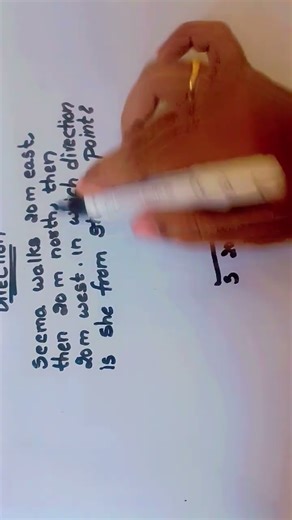 Direction
Seema walks 20m east,
then 20 m north, then
20m west. in direction
is she from point?
S 20